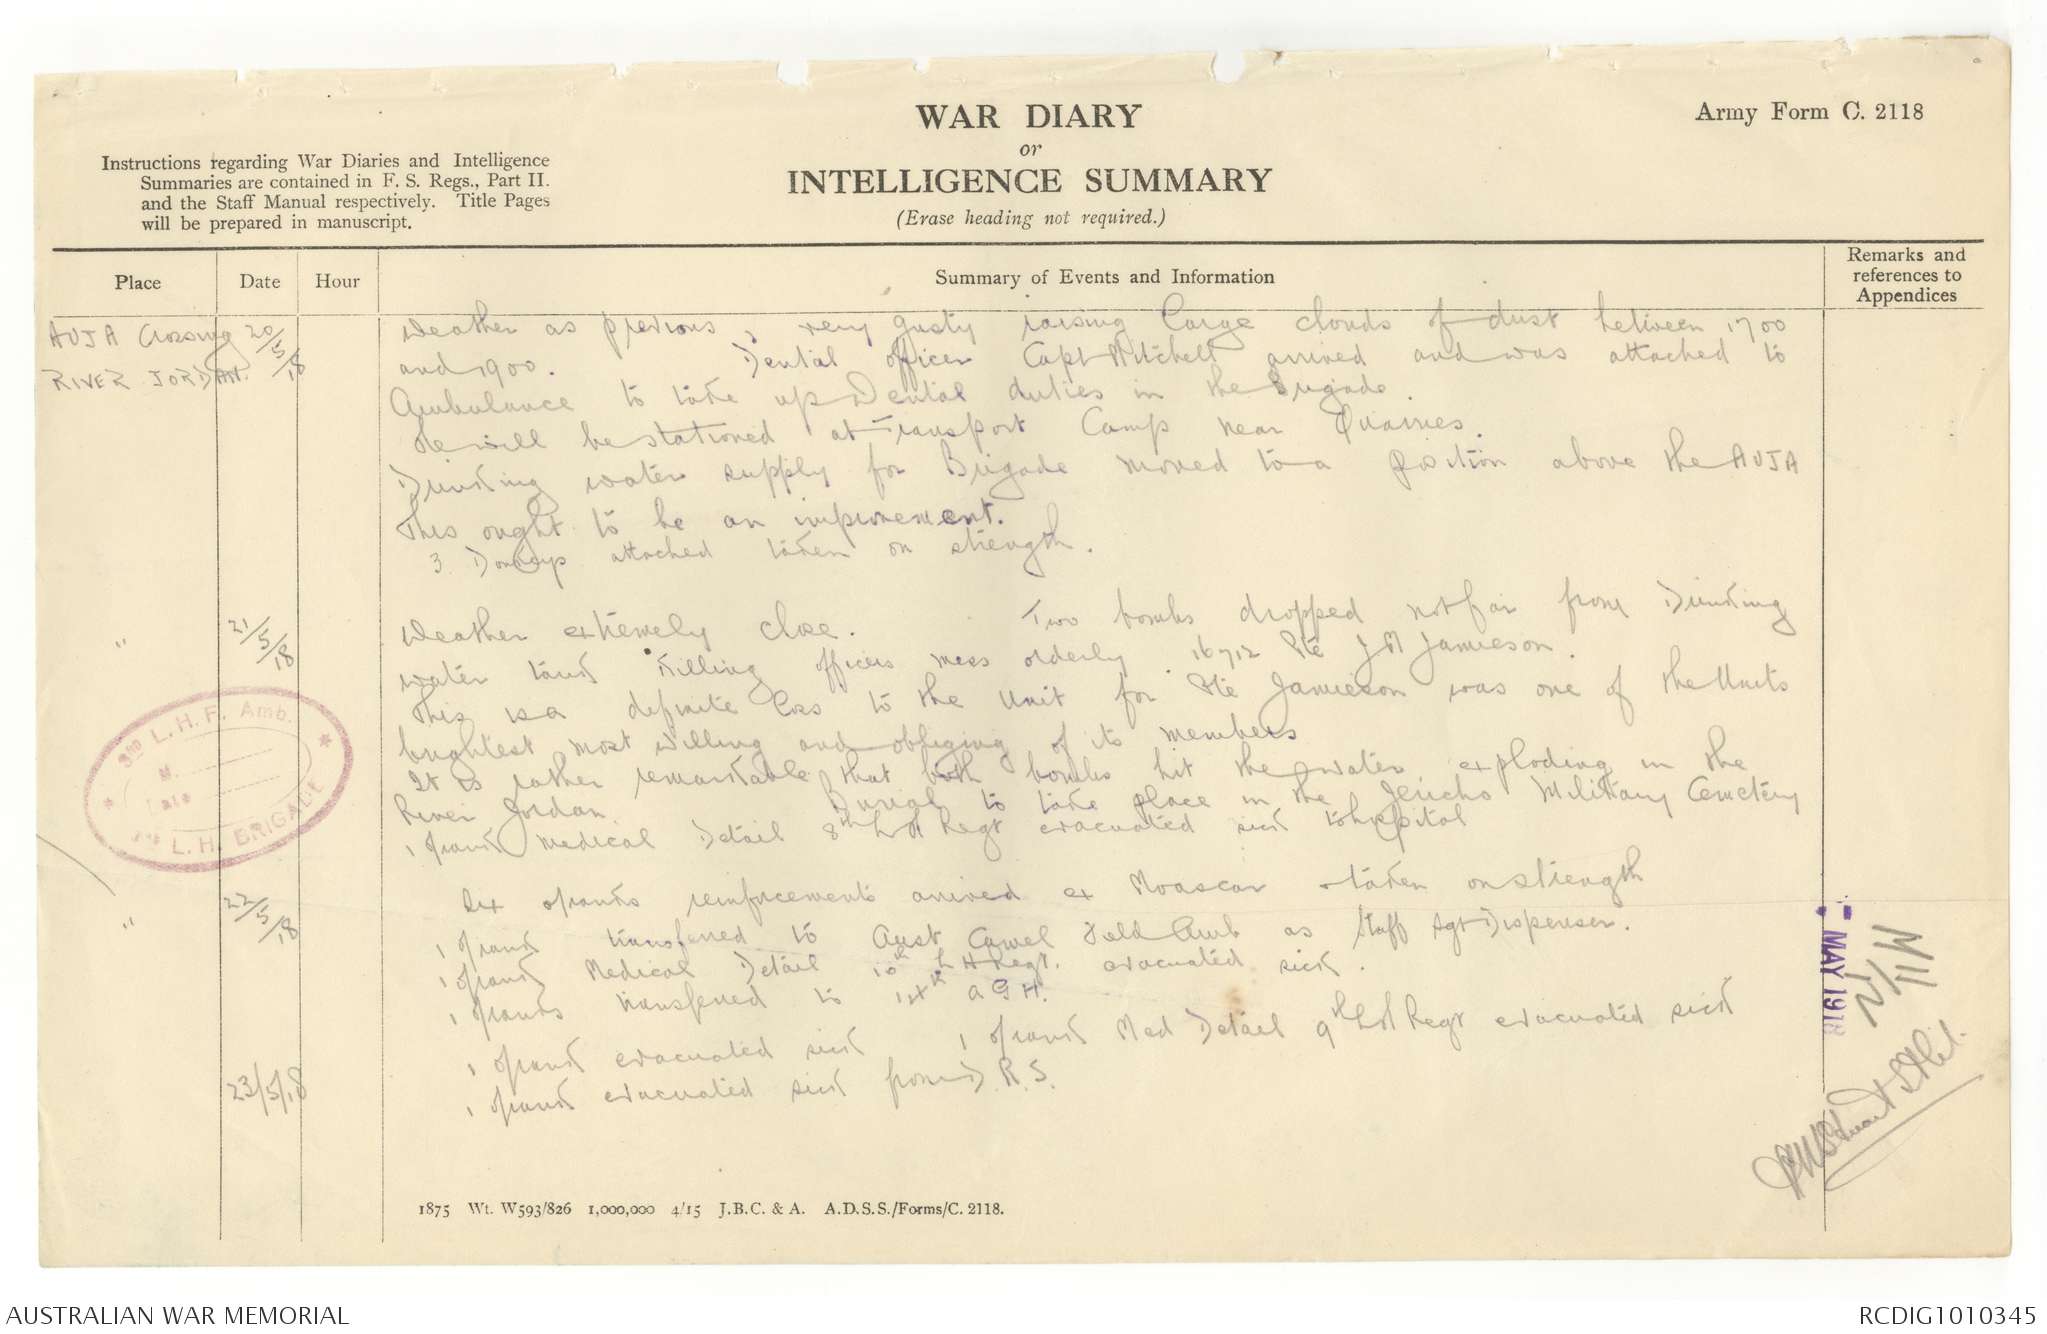 WAR DIARY
or
INTELLIGENCE SUMMARY
(Erase heading not required.)
Army Form C. 2118
Instructions regarding War Diaries and Intelligence
Summaries are contained in F. S. Regs., Part II.
and the Staff Manual respectively. Title Pages
will be prepared in manuscript.
Place
Date
Hour
Summary of Events and Information
Remarks and
references to
Appendices
AUJA Crossing
RIVER JORDAN.
20/5/18
Weather as previous, very gusty raising large clouds of dust between 1700
and 1900. Dental officer Capt Mitchell arrived and was attached to
Ambulance to take up Dental duties in the Brigade.
He will be stationed at Transport Camp near Quarries.
Drinking water supply for Brigade moved to a position above the AUJA
This ought to be an improvement.
3 Donkeys attached taken on strength.
"
21/5/18
Weather extremely close. Two bombs dropped not far from Drinking
water tank killing officers mess orderly 16712 Pte J H Jamieson.
This is a definite loss to the Unit for Pte Jamieson was one of the Units
brightest most willing and obliging of its members
It is rather remarkable that both bombs hit the water exploding in the
River Jordan. Burial to take place in the Jericho Military Cemetery
1 of rank Medical Detail 8th L H Regt evacuated sick to hospital
3RD L. H. F. Amb.
L. H. BRIGADE
"
22/5/18
Six of ranks reinforcements arrived ex Moascar taken on strength
1 of rank transferred to Aust Camel Field Amb as Staff Sgt Dispenser.
1 of rank Medical Detail 10th L H Regt. evacuated sick.
1 of ranks transferred to 14th A G H.
23/5/18
1 of rank evacuated sick 1 of rank Med Detail 9th L H Regt evacuated sick
1 of rank evacuated sick from D. R. S.
MAY 1918
1875 Wt. W593/826 1,000,000 4/15 J.B.C. & A. A.D.S.S./Forms/C. 2118.
AUSTRALIAN WAR MEMORIAL
RCDIG1010345